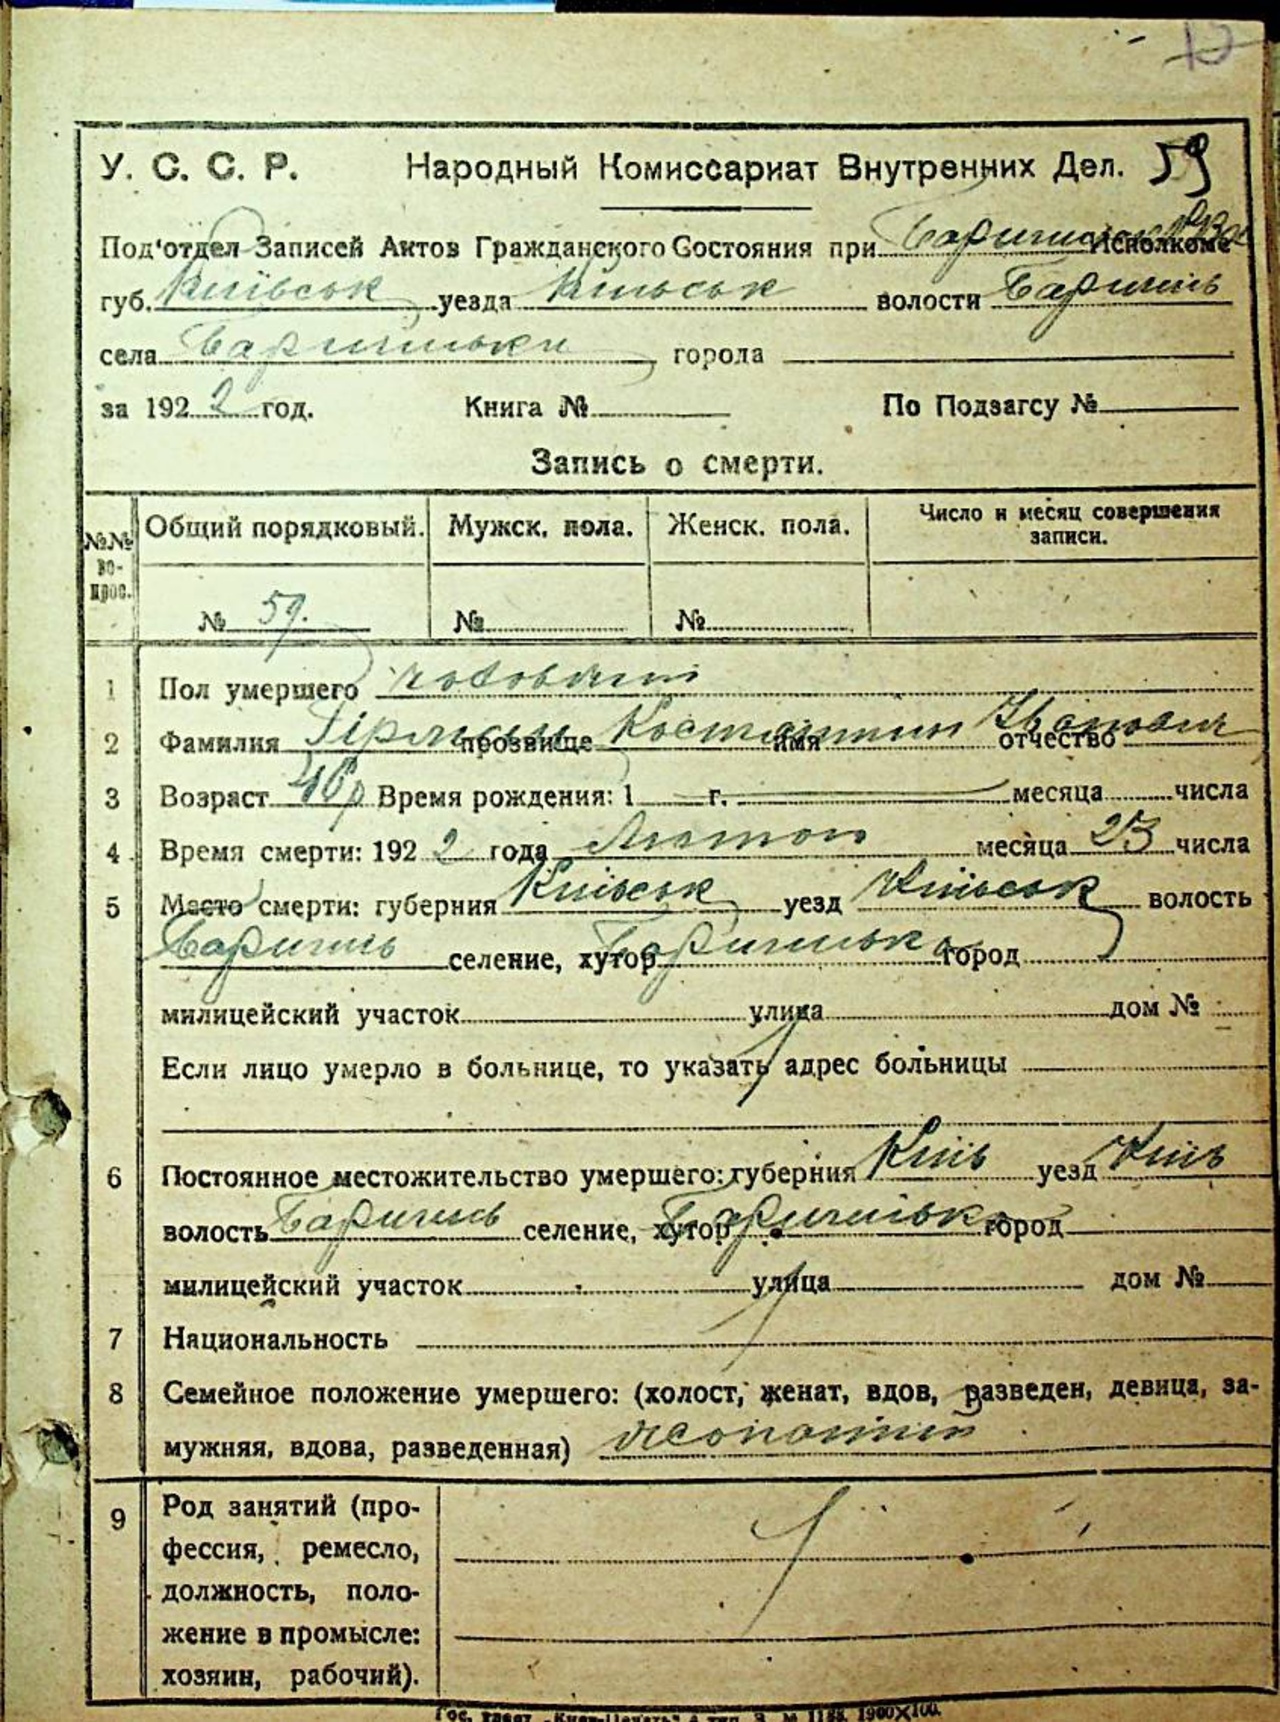 У. С. С. Р. Народный Комиссариат Внутренних Дел. 59
Под'отдел Записей Актов Гражданского Состояния при Исполкоме
губ. Київськ уезда Київськ волости Баришпь
села города
за 1922 год. Книга № По Подзагсу №
Запись о смерти.
№№ вопрос. Общий порядковый. Мужск. пола. Женск. пола. Число и месяц совершения записи.
№ 59. № №
1 Пол умершего чоловічий
2 Фамилия прозвище Костянтин имя Іванович отчество
3 Возраст 46 р Время рождения: 1 г. месяца числа
4 Время смерти: 1922 года Лютого месяца 23 числа
5 Место смерти: губерния Київськ уезд Київськ волость
селение, хутор город
милицейский участок улица дом №
Если лицо умерло в больнице, то указать адрес больницы
6 Постоянное местожительство умершего: губерния Київ уезд Київ
волость селение, хутор город
милицейский участок улица дом №
7 Национальность
8 Семейное положение умершего: (холост, женат, вдов, разведен, девица, за-
мужняя, вдова, разведенная) жонатий
9 Род занятий (про-
фессия, ремесло,
должность, поло-
жение в промысле:
хозяин, рабочий).